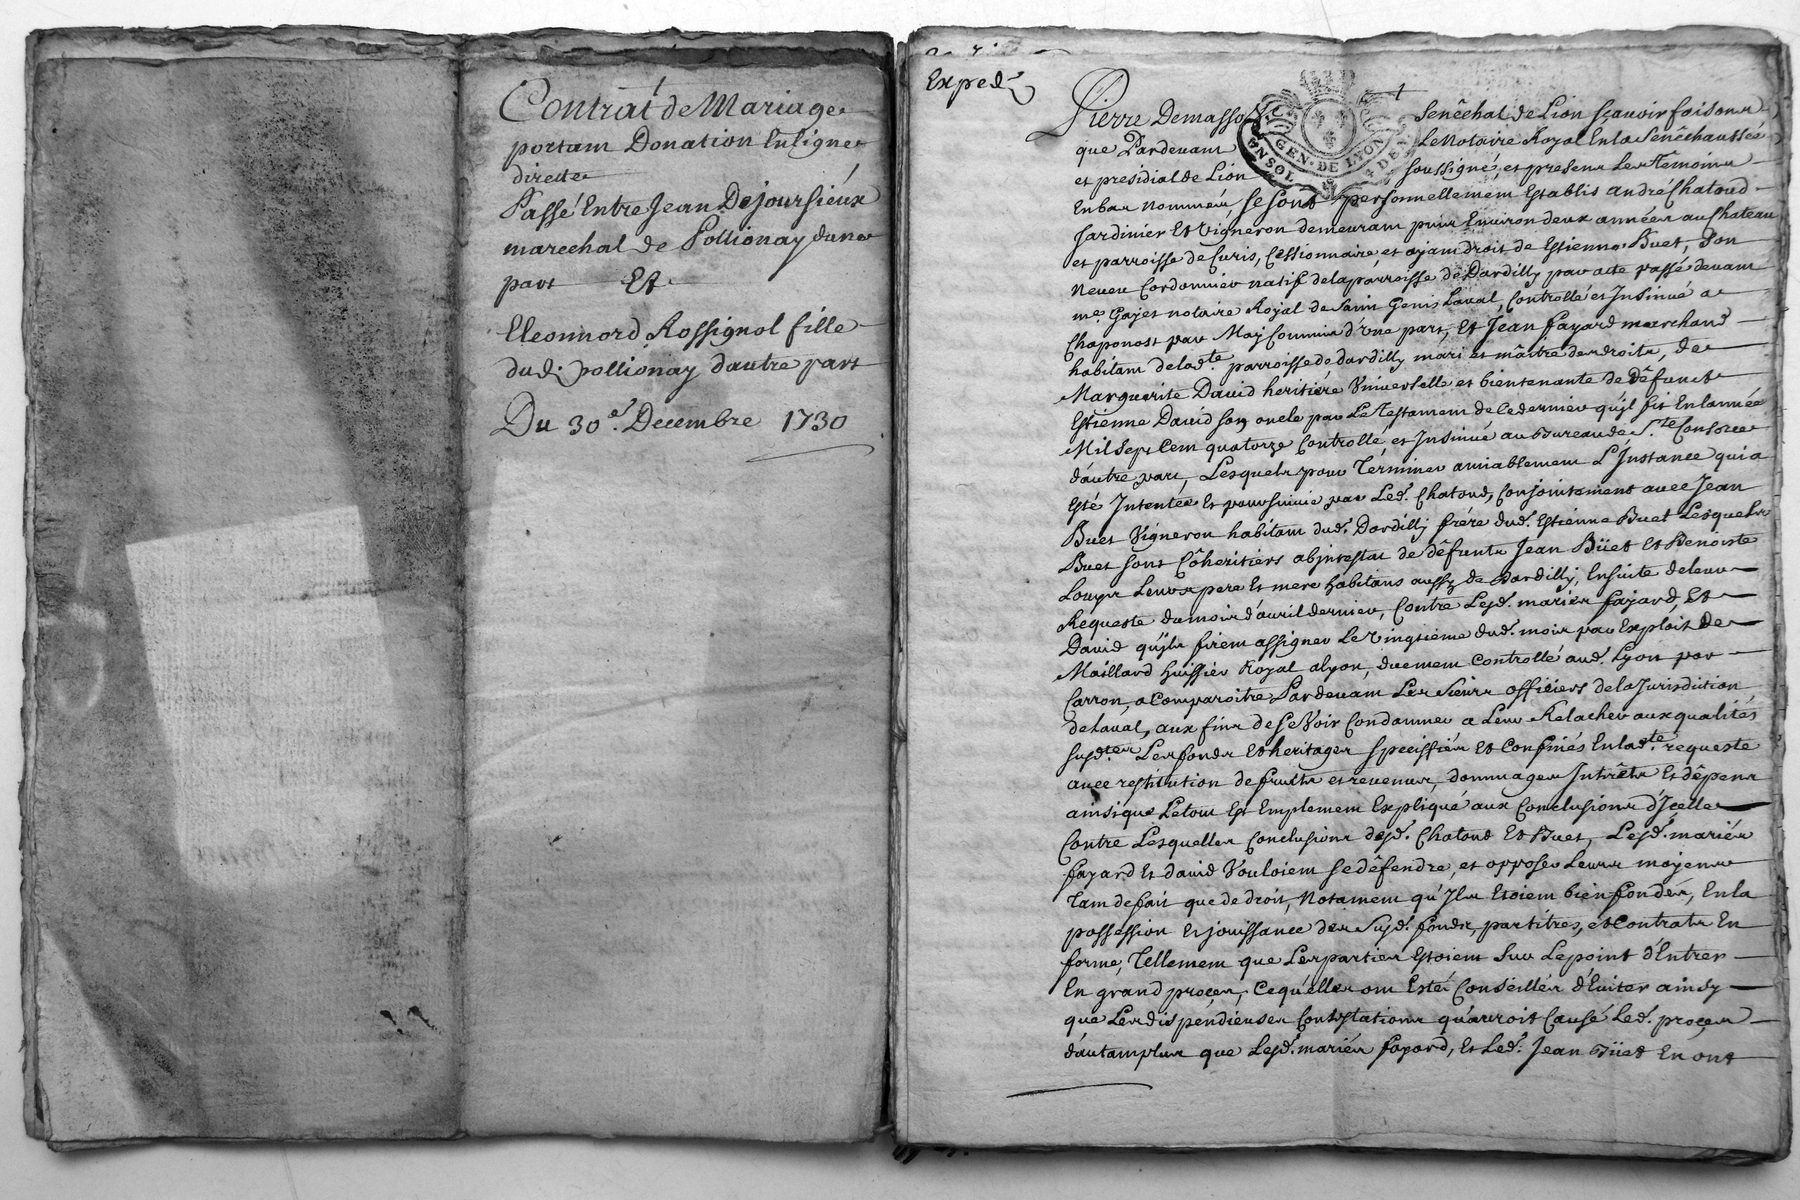 Contrat de Mariage
portam Donation En ligne
directe
Passé Entre Jean Dejoursieux
marechal de Pollionay dune
part Et
Eleonnord Rossignol fille
dud. pollionay d'autre part
Du 30e. Decembre 1730
Exped.
Pierre Demasso Senêchal de Lion sçavoir faisons
que Pardevam Le Notaire Royal En la Senêchaussée
et presidial de Lion soussigné, et presens Les têmoins
En bas nommés se sont personnellement Establis andré Chatoud
Jardinier Et Vigneron demeuram puis Environ deux années au Chateau
et parroisse de Curis, Cessionnaire et ayam droit de Estienne Buet, son
neveu Cordonnier natif de la parroisse de Dardilly par acte passé devam
me. Gayet notaire Royal de Saint Genis Laval, Controllé et Insinué a
Chaponost par Moy Commis d'Une part, Et Jean fayard marchand
habitam de lad.te parroisse de dardilly mari et maître des droits, de
Marguerite David heritiére Universelle et bientenante de dêfunct
Estienne David son oncle par Le Testament de ce dernier qu'jl fit En l'année
Mil sept Cem quatorze Controllé et Insinué au Bureau de S.te Consorce
d'autre part, Lesquels pour Términer amiablement L'Instance qui a
Esté Intentée Et poursuivie par Led. Chatoud, Conjointement avec Jean
Buet Vigneron habitam dud. Dardilly frére dud. Estienne Buet Lesquels
Buet sont Côheritiers abjntestat de dêfunts Jean Büet Et Benoiste
Leurs pere Et mere habitans aussy de Dardilly, Ensuite de leur
Requeste du mois d'avril dernier, Contre Lesd. mariés fayard, Et
David qu'jls firem assigner Le Vingtieme dud. mois par Exploit De
Maillard huissier Royal a lyon, duement Controllé aud. Lyon par
Carron, a Comparoitre Pardevam Les Sieurs officiers de la Jurisdiction
de Laval, aux fins de se Voir Condamner a Leur Relacher aux qualités
susd.tes Les fonds Et heritages speciffiés Et Confinés En lad.te requeste
avec restitution de fruits et revenus, dommages Intrêts Et dêpens
ainsi que Letout Est Emplement Expliqué aux Conclusions d'Jcelle
Contre Lesquelles Conclusions desd. Chatoud Et Buet, Lesd. mariés
fayard Et David Vouloiem se dêfendre, et opposer Leurs moyens
Tam de fait que de droit, Notament qu'Jls Etoiem bien fondés, En la
possession Et jouissance des Susd. fonds, par titres, et Contrats En
forme, Tellement que Les parties Estoiem Sur Le point d'Entrer
En grand procés, Ce qu'elles ont Esté Conseillés d'Eviter ainsy
que Les dispendieuses Contestations qu'auroit Causé Led. procés
d'autam plus que Lesd. mariés fayard, Et Led. Jean Büet En ont
GEN. DE LYON